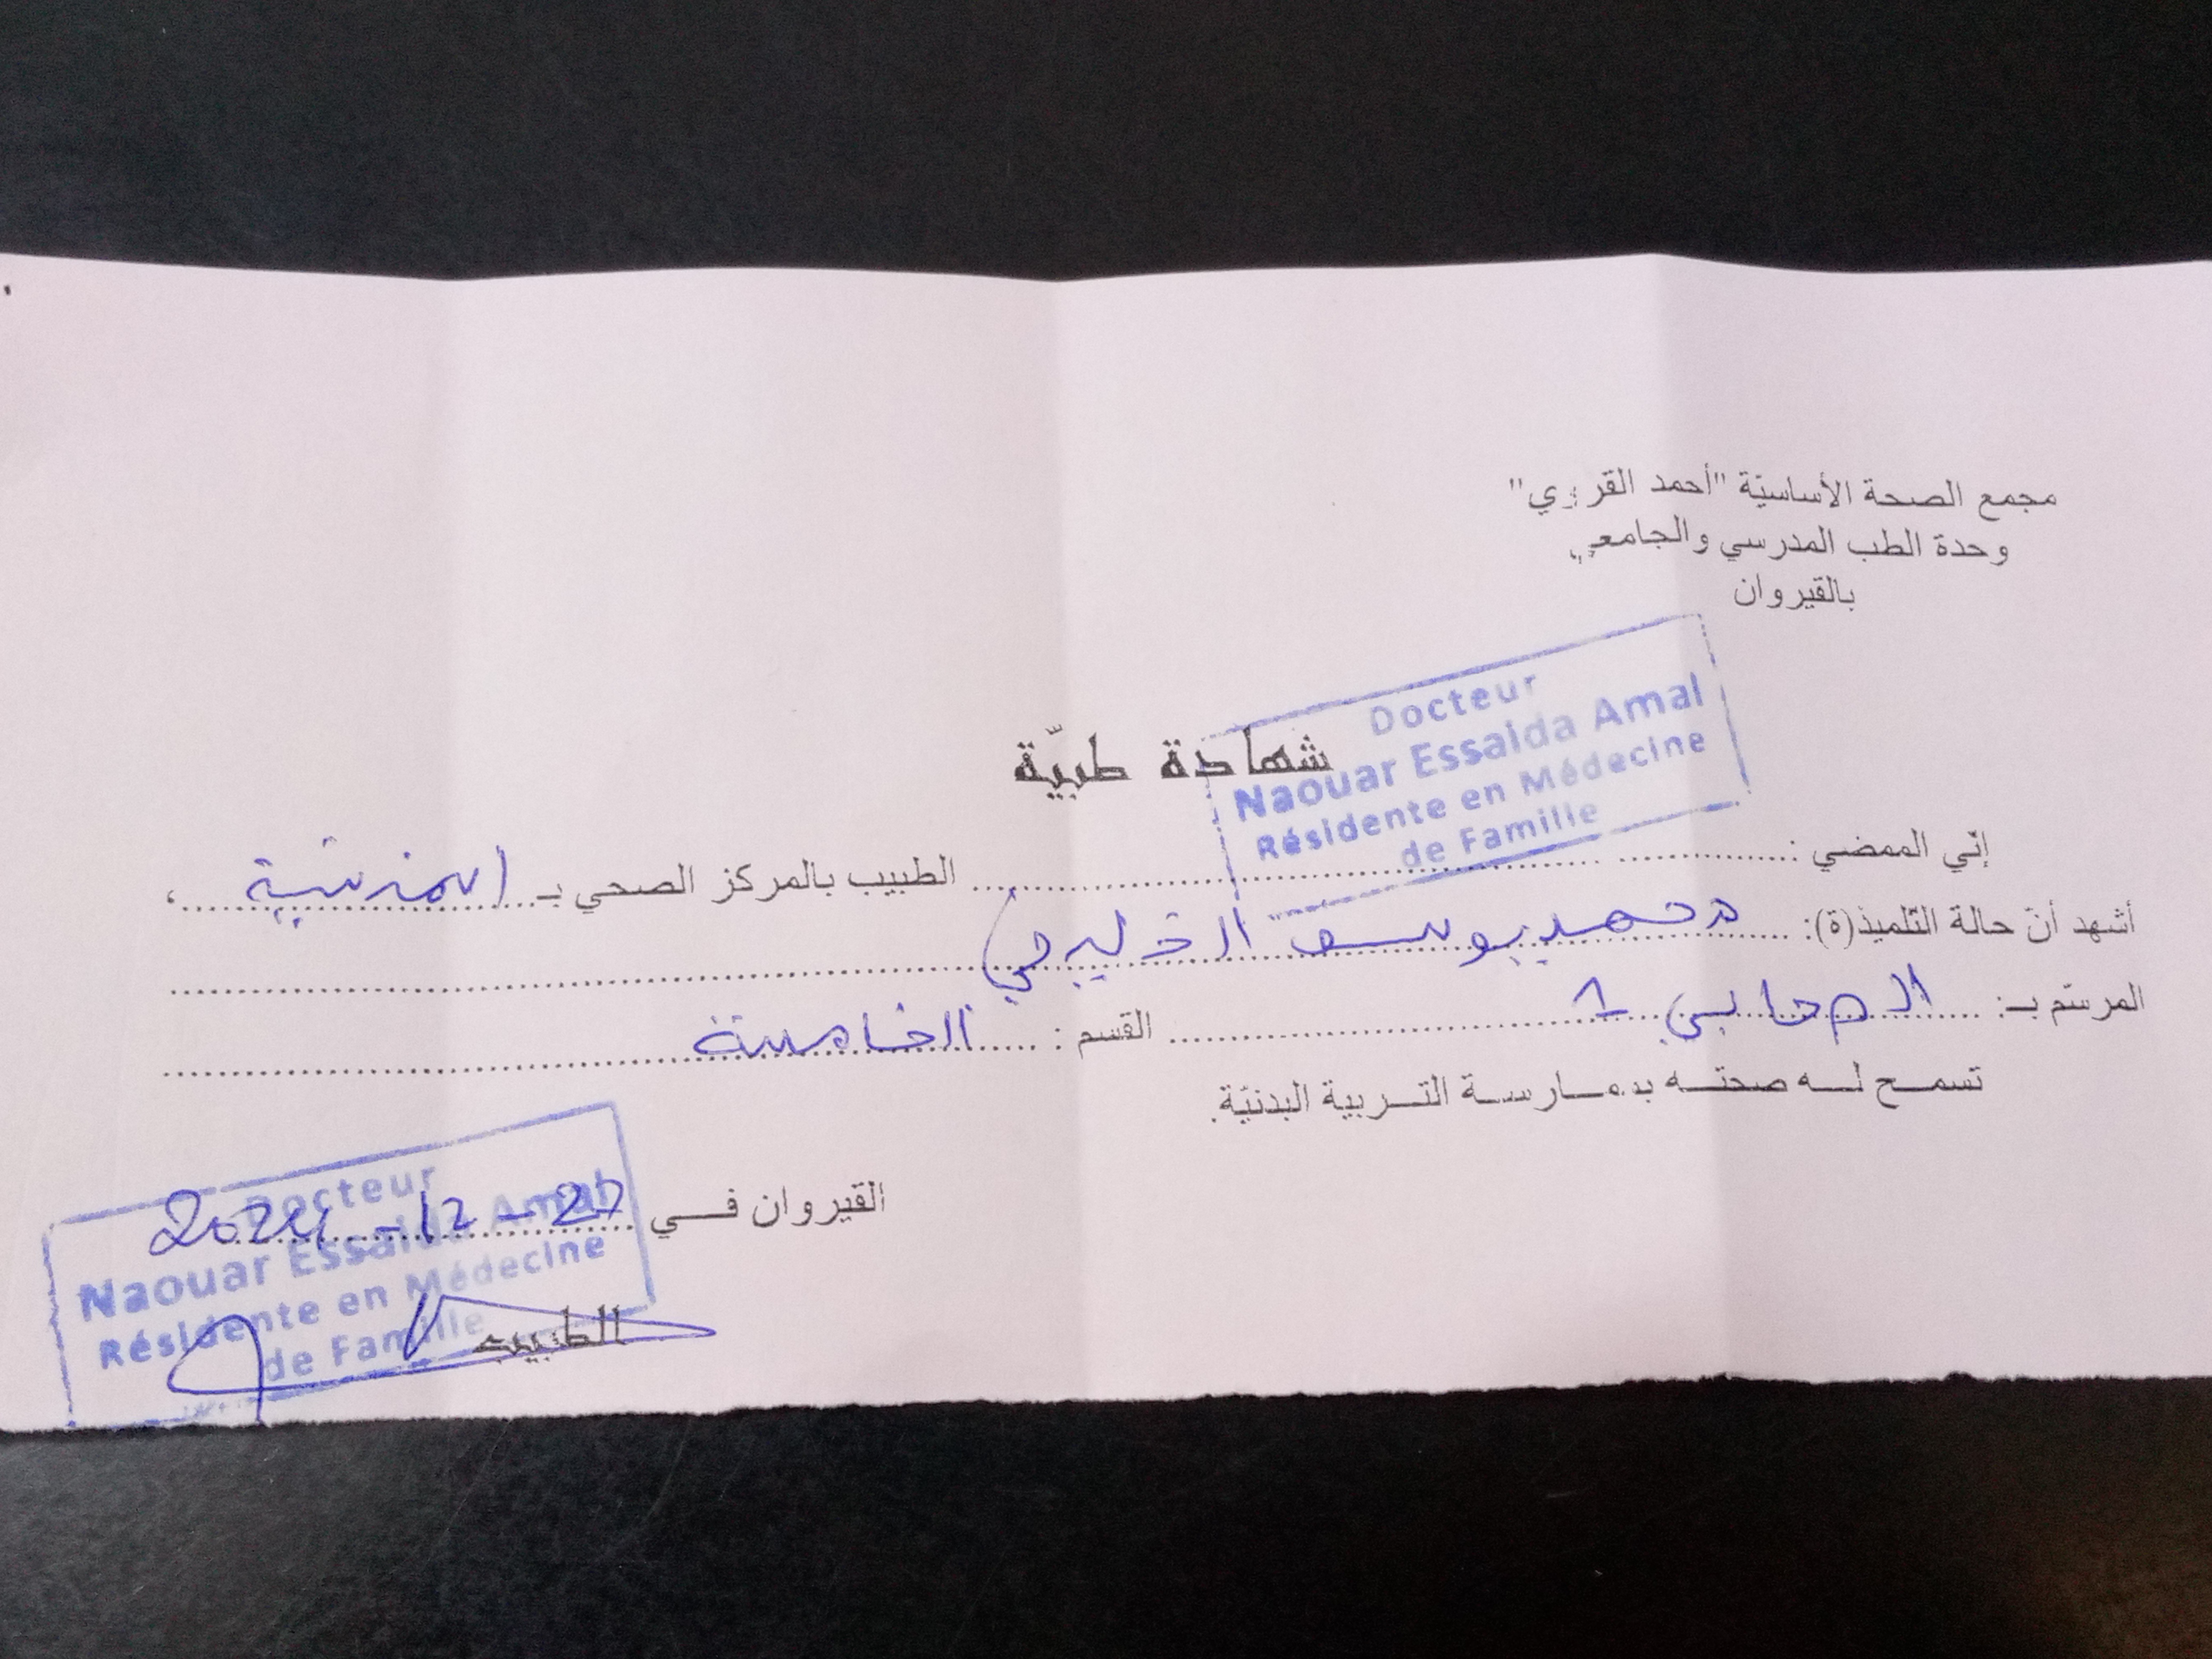 مجمع الصحة الأساسيّة "أحمد القروي"
وحدة الطب المدرسي والجامعي
بالقيروان
Docteur
Naouar Essaida Amal
Résidente en Médecine
de Famille
شهادة طبيّة
إنّي الممضي : الطبيب بالمركز الصحي بـ ،
أشهد أنّ حالة التلميذ(ة): محمد يوسف
المرسّم بـ: الصحابي 1 القسم : الخامسة
تسمح له صحته بممارسة التربية البدنيّة.
القيروان في 2024-12-
Docteur
Naouar Essaida Amal
Résidente en Médecine
de Famille
الطبيب